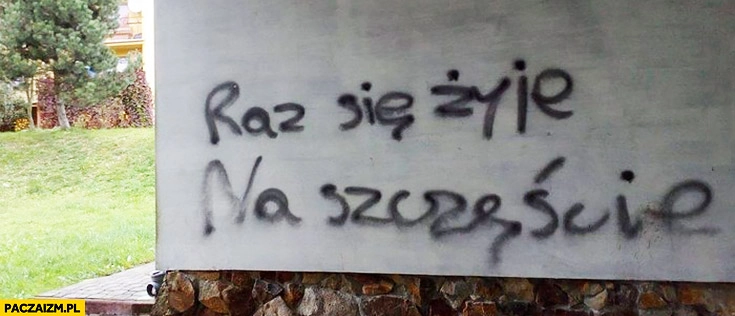 Raz się żyje
Na szczęście
PACZAIZM.PL